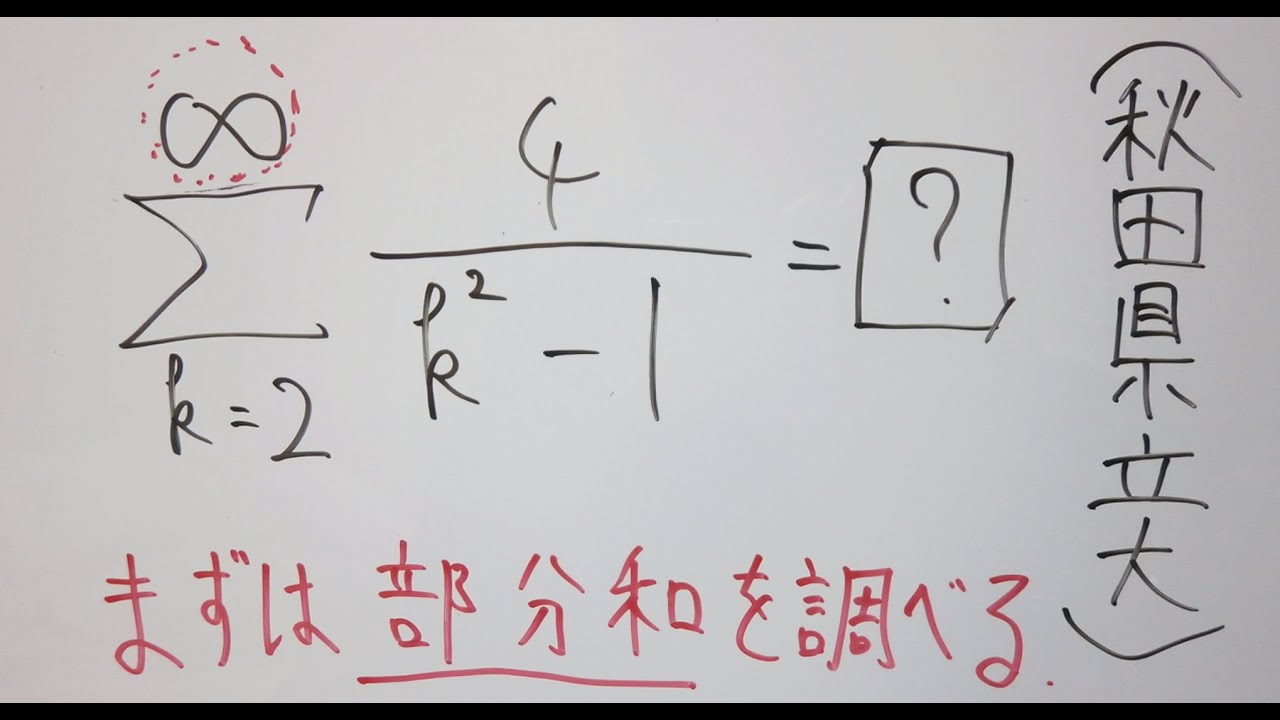 ∞
Σ 4/(k²-1) = ?
k=2
(秋田県立大)
まずは部分和を調べる.